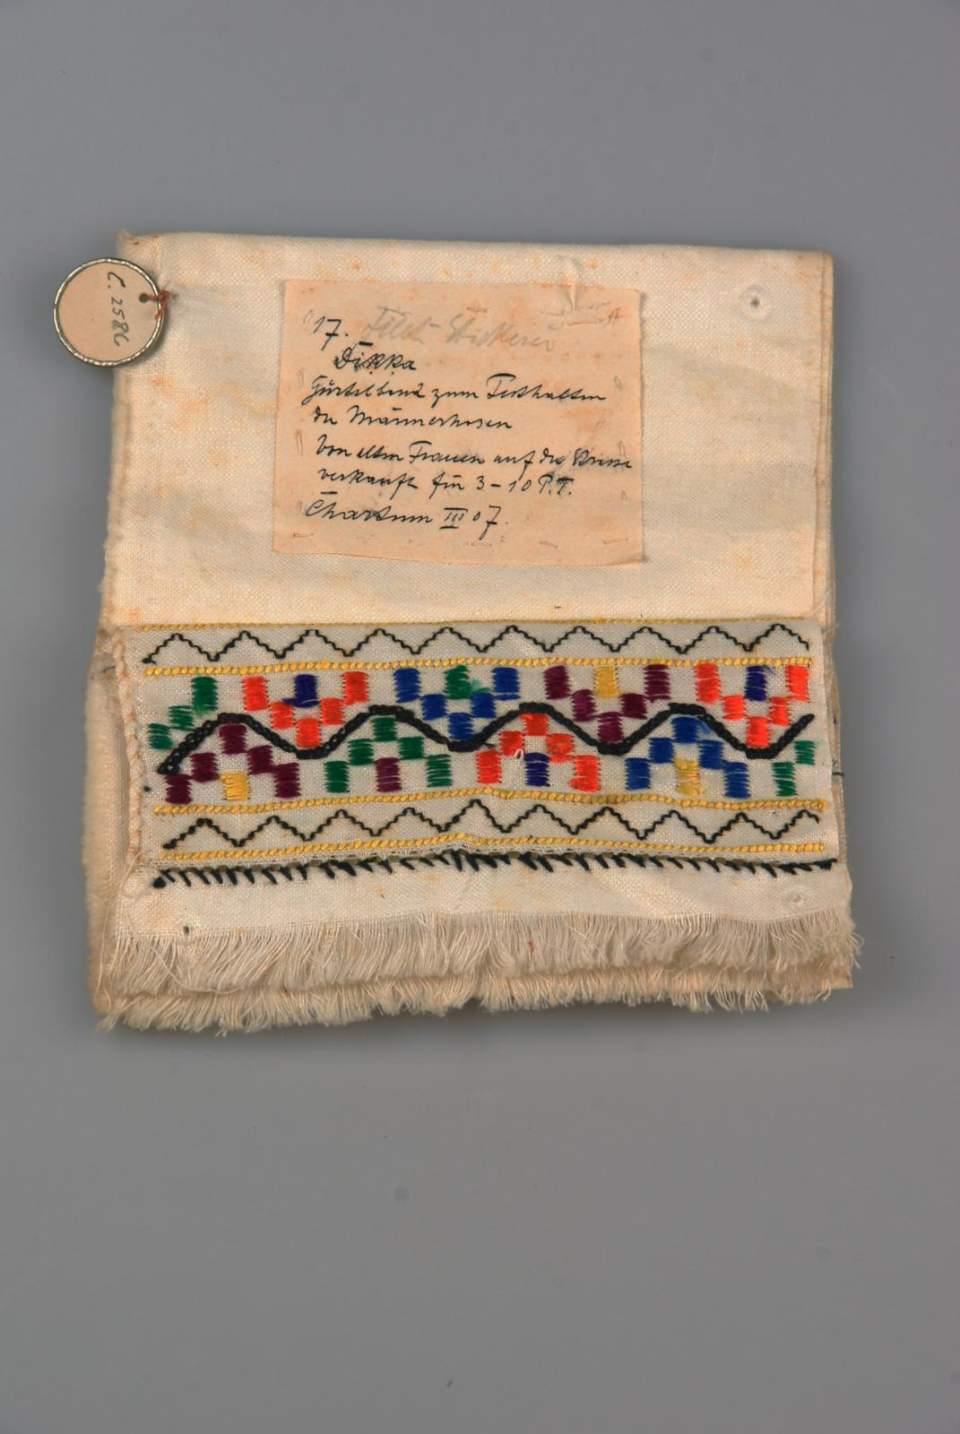 C. 2586
17.
Dikka
Gürtelband zum Festhalten
der Männerhosen
Von alten Frauen auf der Strasse
verkauft für 3-10 P.T.
Chartum III 07.